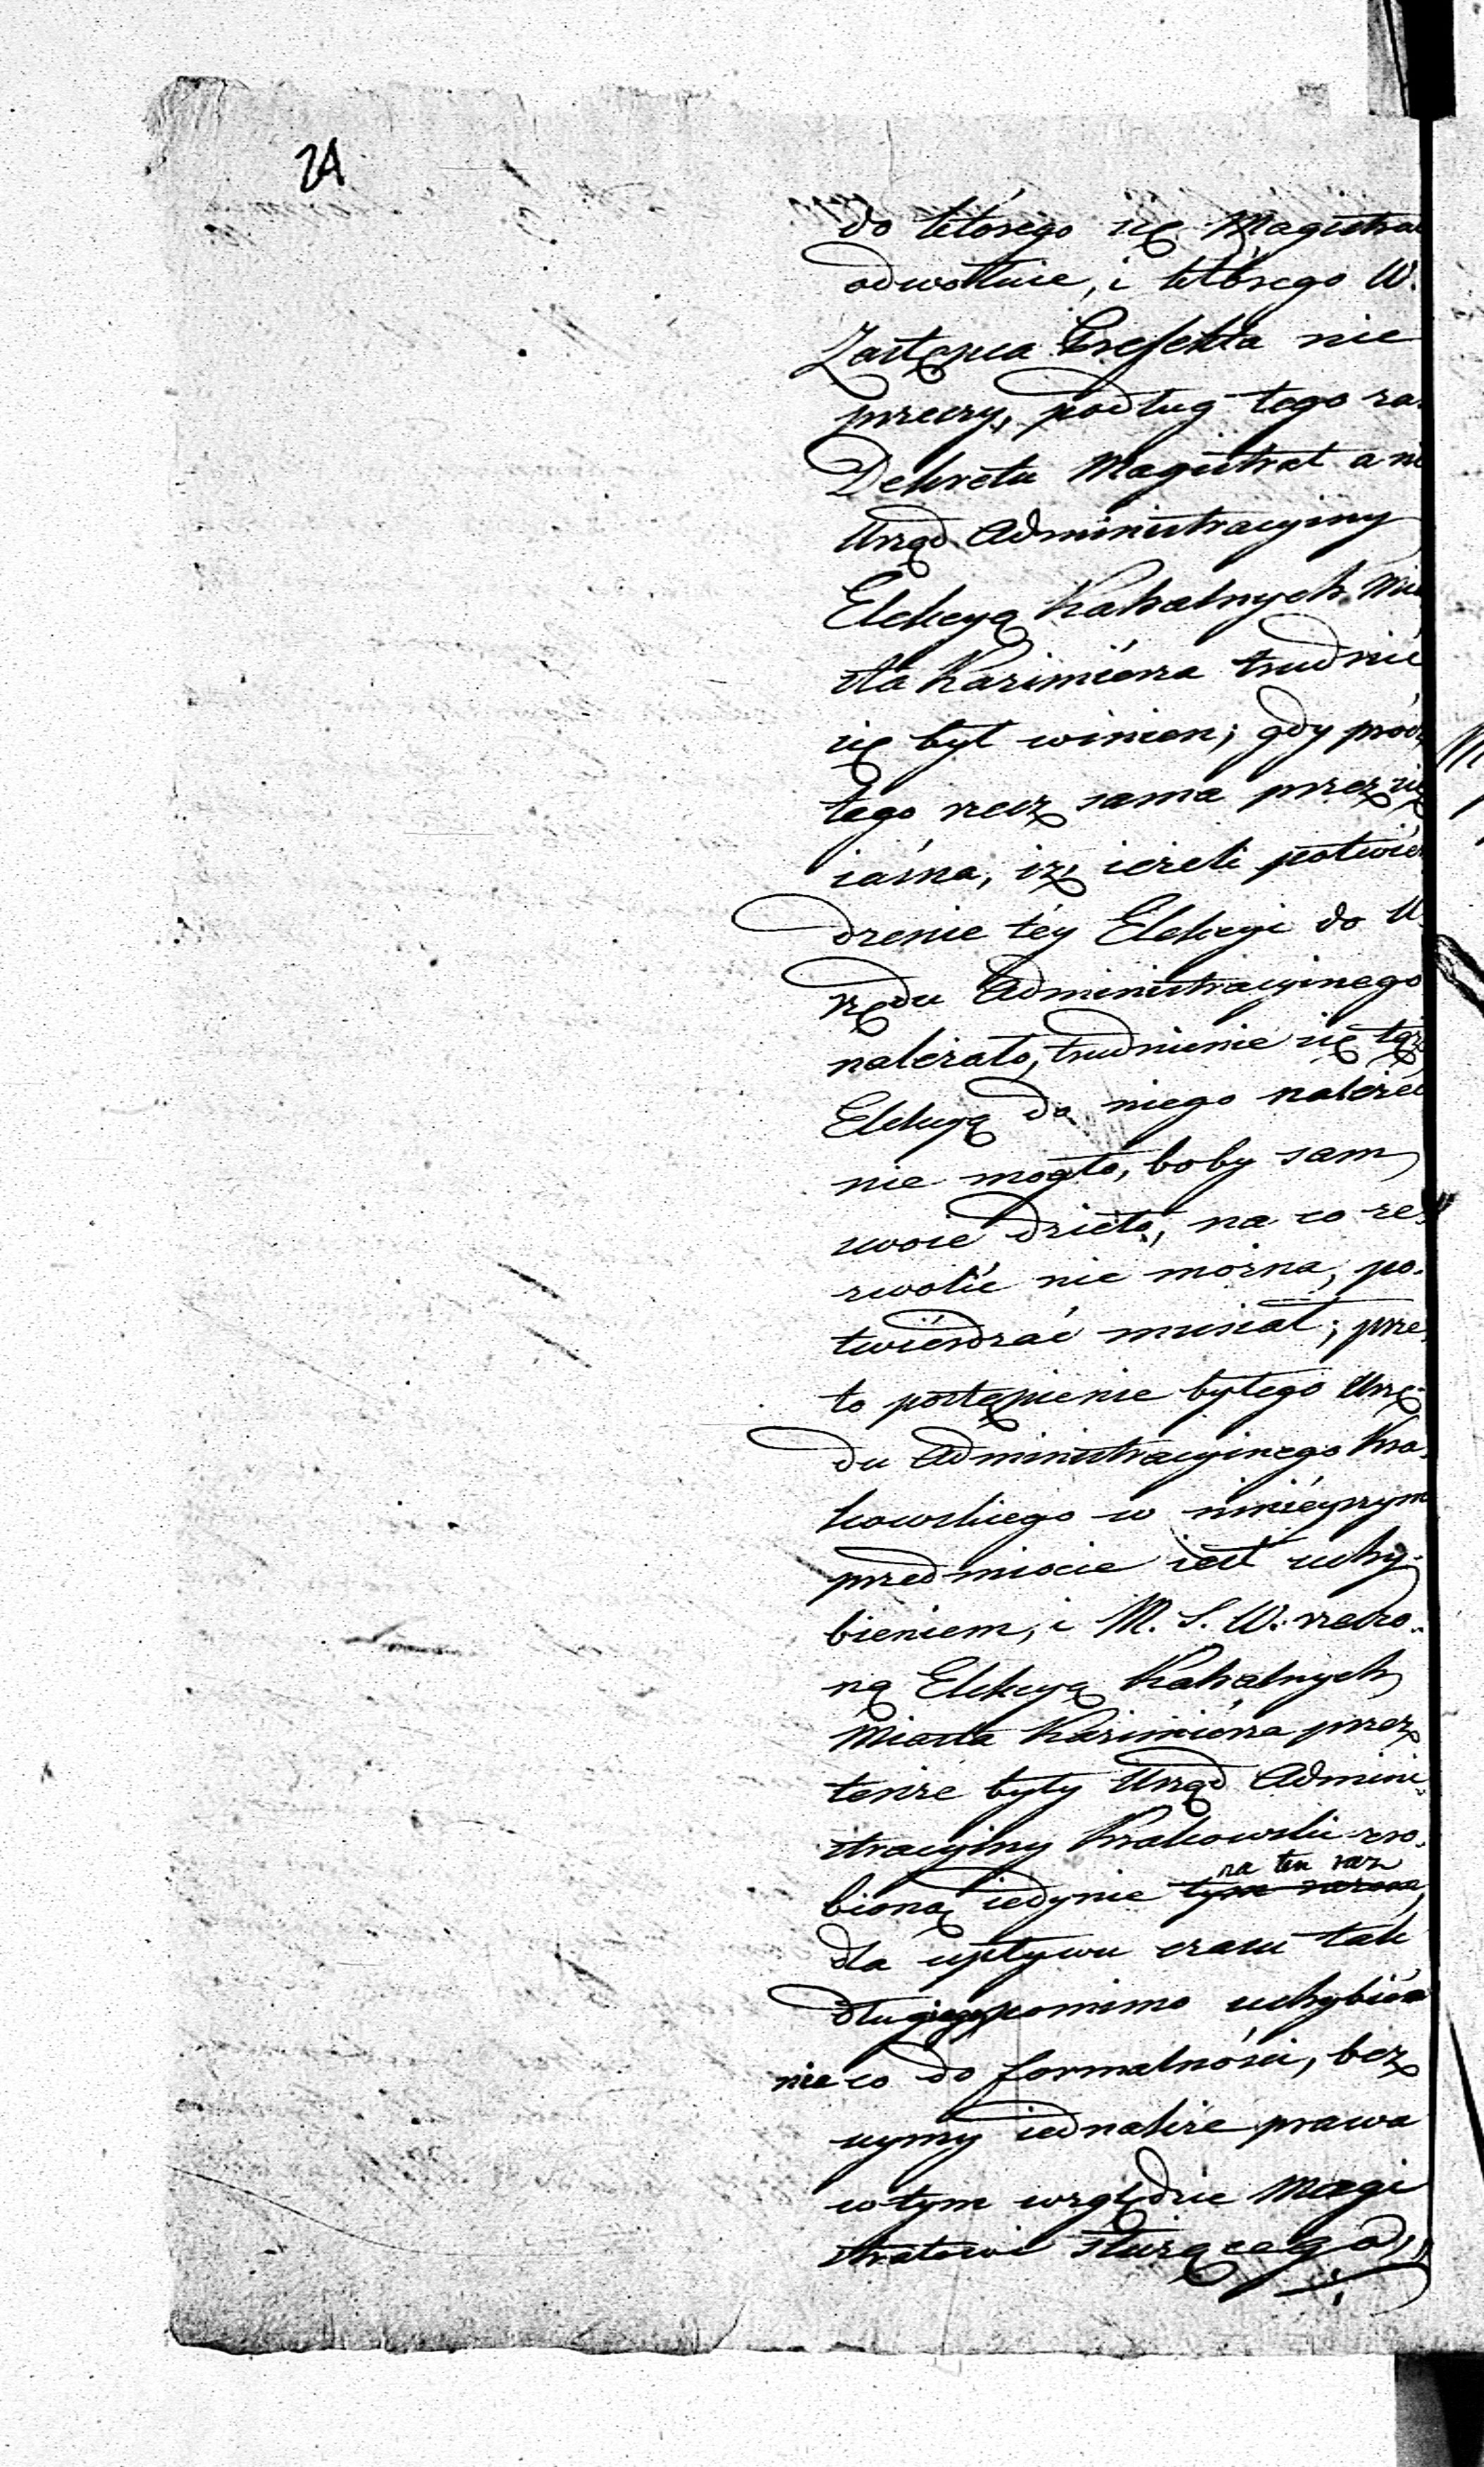 24
do którego się Magistra
odwołuie, i którego W.
Zastępca Prefekta nie
przeczy, podług tego za.
Dekretu Magistrat a ni
Urząd Administracyiny
Elekcyą Kahalnych Mia
sta Kazimiérza trudnić
się był winien; gdy prócz
tego rzecz sama przez się
iásna, iż, ieżeli potwiér
dzenie téy Elekcyi do U.
rzędu Administracyinego
należało, trudnienie się tąż
Elekcyą do niego należéć
nie mogło, boby sam
swoie dzieło, na co ze.
zwolić nie można, po.
twiérdzać musiał; prze.
to postąpienie byłego Urzę.
du Administracyinego Kra.
kowskiego w niniéyszym
przedmiocie iest uchy.
bieniem, i M. S. W. rzeczo.
ną Elekcyą Kahalnych
Miasta Kazimiérza przez
tenże były Urząd Admini.
stracyiny Krakowski zro.
na ten raz
bioną iedynie tym razem,
dla upływu czasu tak
długiego pomimo uchybié
nie co do formalności, bez
uymy iednakże prawa
w tym względzie Magi
stratowi służącego,